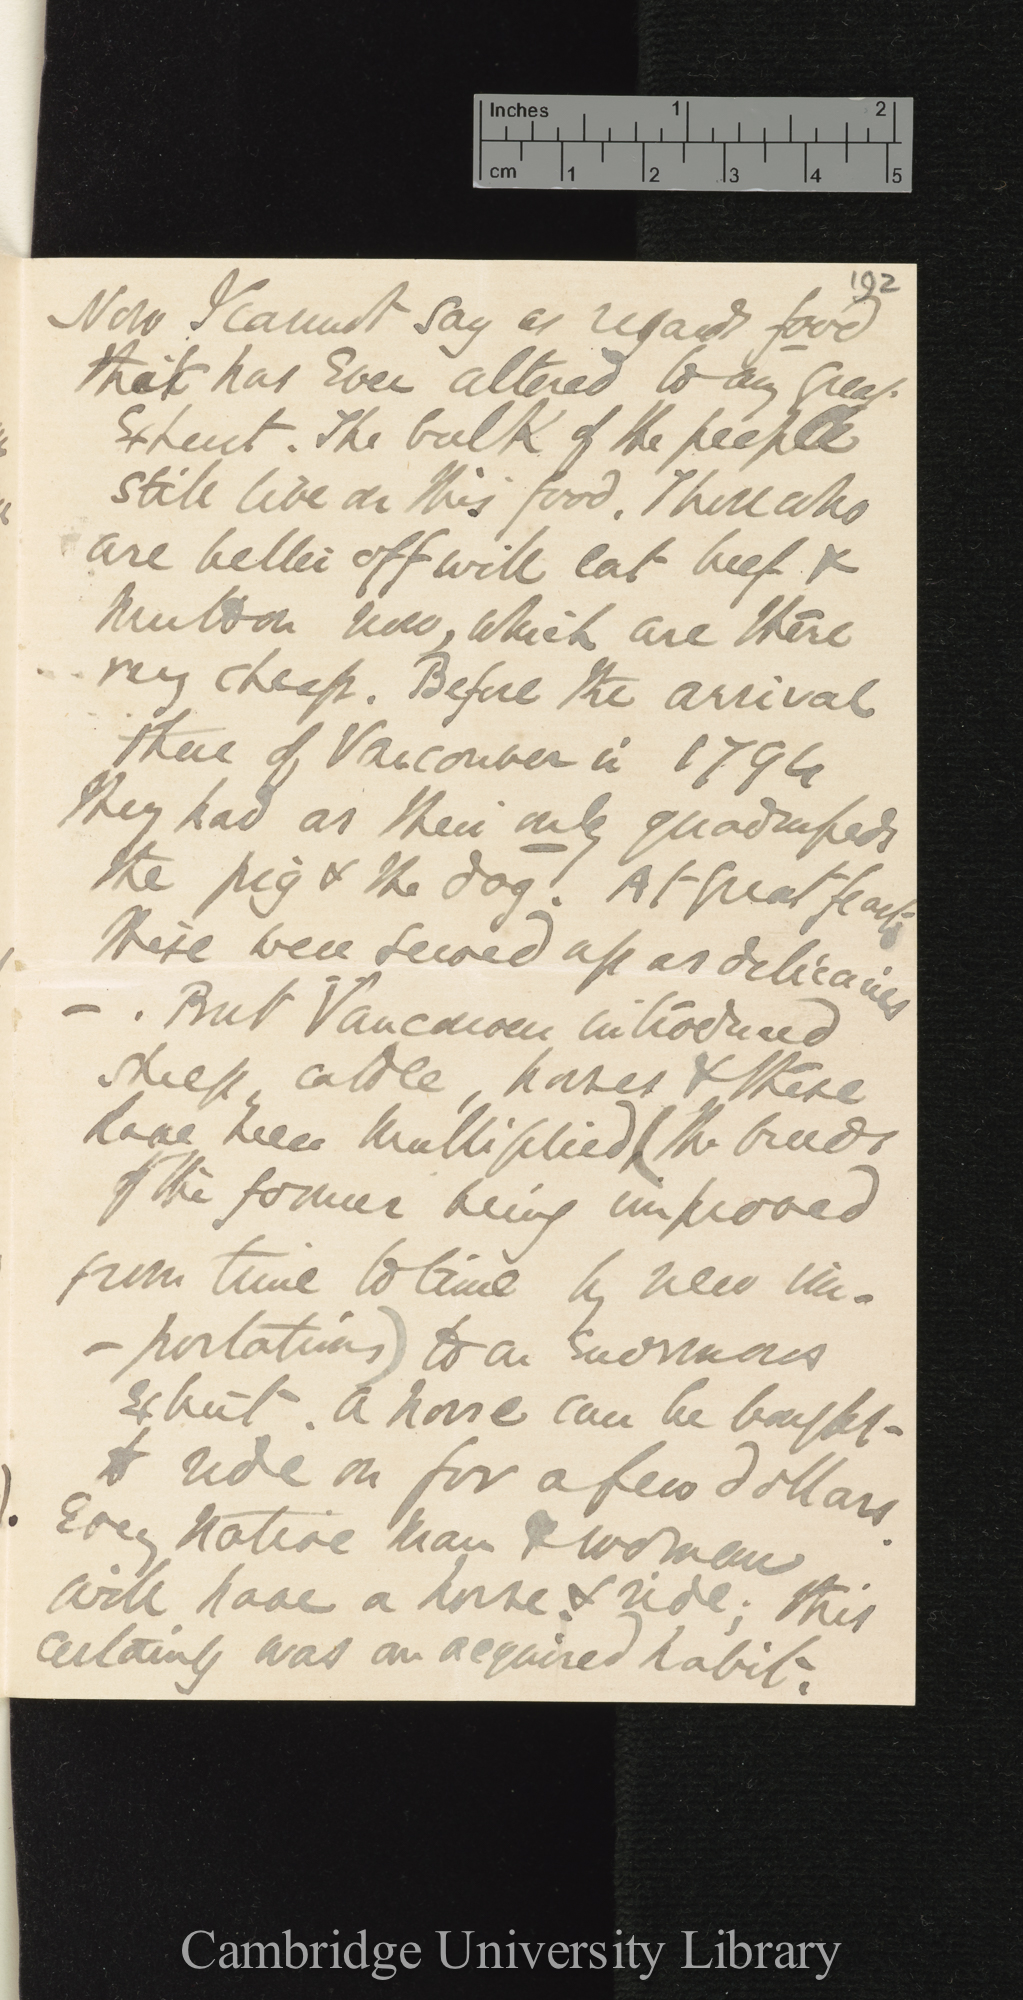 Inches 1 2
cm 1 2 3 4 5
192
Now I cannot say as regards food
that has ever altered to any great
extent. The bulk of the people
still live on this food. Those who
are better off will eat beef &
mutton now, which are there
very cheap. Before the arrival
there of Vancouver in 1794
they had as their only quadrupeds
the pig & the dog. At great feasts
these were served up as delicacies
–. But Vancouver introduced
sheep, cattle, horses & these
have been multiplied (the breeds
of the former being improved
from time to time by new im-
-portations) to an enormous
extent. A horse can be bought
to ride on for a few dollars.
Every native man & woman
will have a horse & ride; this
certainly was an acquired habit.
Cambridge University Library